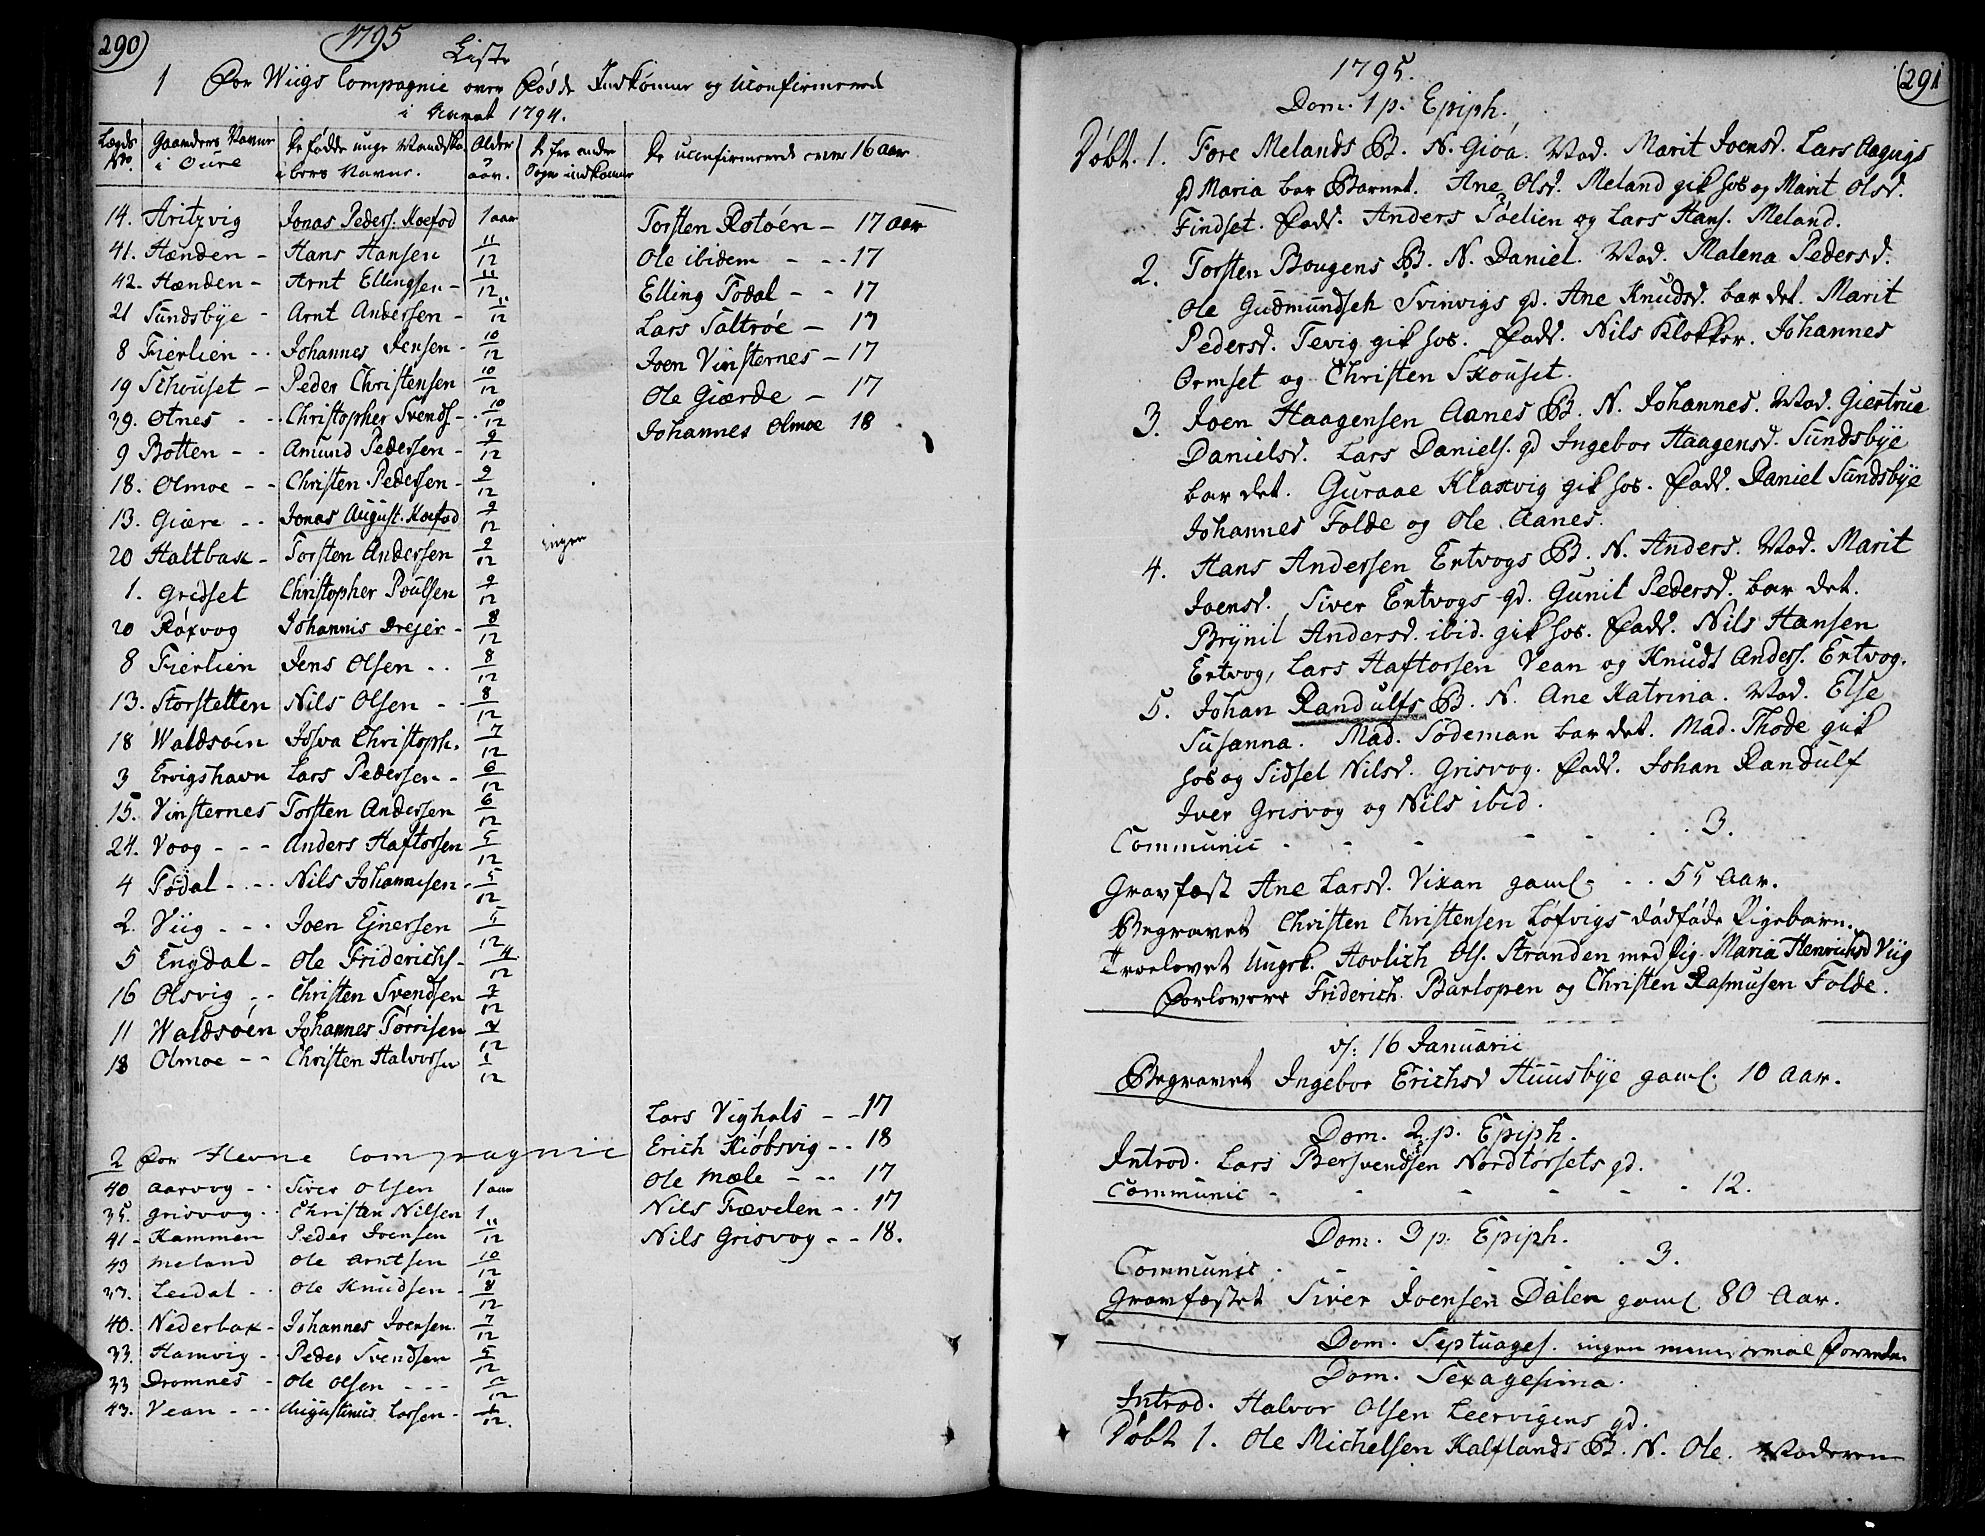 290)
1795
Liste
1 For Wiigs Compagnie over Fødde Indkomne og Uconfirmerede
i Aaret 1794.
Lægds No. | Gaardens Navne i Oure | De fødde unge Mandskabers Navne. | Alder aar. | De fra andre Sogne indkomne | De uconfirmerede over 16 aar
14. Aritzvig Jonas Peders. Koefod 1 aar Torsten Rotøen - 17 aar
41. Hænden - Hans Hansen 11/12 Ole ibidem - - 17
42. Hænden - Arnt Ellingsen - 11/12 Elling Todal - - 17
21 Sundsbye - Arnt Andersen - 11/12 Lars Saltrøe - 17
8 Fierlien - - Johannes Jensen - 10/12 Joen Vinsternes - 17
19 Schouset - Peder Christensen 10/12 Ole Giærde - 17
39. Otnes - - Christopher Svends - 10/12 Johannes Olmoe 18
9 Botten - - Amund Pedersen - 9/12
18. Olmoe - - Christen Pedersen - 9/12
13. Giære - - Jonas August. Koefod 9/12
20 Haltbak - Torsten Andersen 9/12 ingen
1. Gredset Christopher Poulsen 9/12
20 Røxvog Johannis Drejer - 8/12
8 Fierlien Jens Olsen - - 8/12
13. Storstetten Nils Olsen - - 8/12
18 Waldsøen Josva Christoph. 7/12
3 Ervigshavn Lars Pedersen - 6/12
15. Vinsternes Torsten Andersen 6/12
24. Voog - - - Anders Haftorsen 5/12
4 Todal - - - Nils Johannesen - 5/12
2. Viig - - - Joen Ejnersen 5/12
5 Engdal - Ole Friderichs - 4/12
16 Olsvig - - Christen Svendsen 3/12
11 Waldsøen Johannes Tørrisen 4/12
18 Olmoe - - Christen Halvorsen 1/12
Lars Vighals - - 17
2 For Hevne Compagnie Erich Kiøbsvig - - 18
40 Aarvog - - Siver Olsen 1 aar Ole Mæle - - - 17
35. Grisvog - - Christen Nilsen 1 Nils Frevelen - - 17
41 - Hammen Peder Joensen 11/12 Nils Grisvog - - 18.
43 Meland Ole Arntsen 10/12
37. Leedal - - Ole Knudsen - 8/12
40. Nederbak - Johannes Joensen 7/12
33. Hamvig - - Peder Svendsen 5/12
33 Dromnes - Ole Olsen - - - 2/12
43. Vean - - - Augustinus Larsen - 1/12.
1795.
(291
Dom. 1 p. Epiph.
Døbt. 1. Tore Melands B. N. Giøa. Mod. Marit Joensd. Lars Aagvigs
qd Maria bar Barnet. Ane Olsd. Meland gik hos og Marit Olsd.
Findset. Fadd. Anders Søelien og Lars Hans. Meland.
2. Torsten Bougens B. N. Daniel. Mod. Malena Pedersd.
Ole Gudmundsen Svinvigs qd. Ane Knudsd. bar det. Marit
Pedersd. Tevig gik hos. Fadd. Nils Klokker. Johannes
Ormset og Christen Skouset.
3. Joen Haagensen Aanes B. N. Johannes. Mod. Giertrue
Danielsd. Lars Daniels. qd Ingebor Haagensd. Sundsbye
bar det. Guraae Klaxvig gik hos. Fadd. Daniel Sundsbye
Johannes Folde og Ole Aanes.
4. Hans Andersen Ertvogs B. N. Anders. Mod. Marit
Joensd. Siver Ertvogs qd. Gunil Pedersd. bar det.
Brynil Andersd. ibid. gik hos. Fadd. Nils Hansen
Ertvog, Lars Haftorsen Vean og Knudt Anders. Ertvog.
5. Johan Randulfs B. N. Ane Katrina. Mod. Else
Susanna. Mad. Sødeman bar det. Mad. Thode gik
hos og Sidsel Nilsd. Grisvog. Fadd. Johan Randulf
Iver Grisvog og Nils ibid.
Communic - - - - - - 3.
Gravfæst Ane Larsd. Vikan gaml - - 55 Aar.
Begravet Christen Christensen Løfvigs dødfødde Pigebarn.
Troelovet Ungk. Hovlich Ols. Stranden med Pig. Maria Henrichsd Viig
Forlovere Friderich Barlopen og Christen Rasmusen Folde.
d: 16 Januarii
Begravet Ingebor Erichsd Huusbye gaml. 10 Aar.
Dom. 2. p. Epiph.
Introd. Lars Bersvendsen Nordtorsets qd.
Communic - - - - - - 12.
Dom. 3 p. Epiph.
Communic. - - - - - 3.
Gravfæstet Siver Joensen Dalen gaml 80 Aar.
Dom. Septuages. ingen
Dom. Sexagesima.
Introd. Halvor Olsen Leervigens qd.
Døbt 1. Ole Michelsen Kalflands B. N. Ole. Moderen